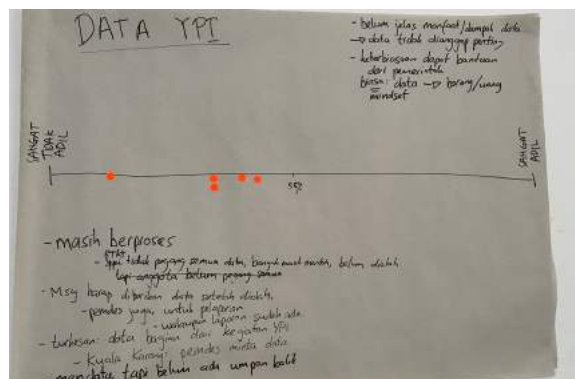 DATA YPI
- belum jelas manfaat/dampak data
→ data tidak dianggap penting
- keterbiasaan dapat bantuan
dari pemerintah
biasa: data → barang/uang
mindset
SANGAT
TIDAK
ADIL
SANGAT
ADIL
- masih berproses
tidak pegang semua data, banyak masih mentah, belum diolah
tapi anggota belum pegang semua
- Msy harap diberikan data setelah diolah,
- pemdes juga, untuk pelaporan
- walaupun laporan sudah ada
- turunan: data bagian dari kegiatan YPI
- Kuala Karang: pemdes minta data
- mendata tapi belum ada umpan balik